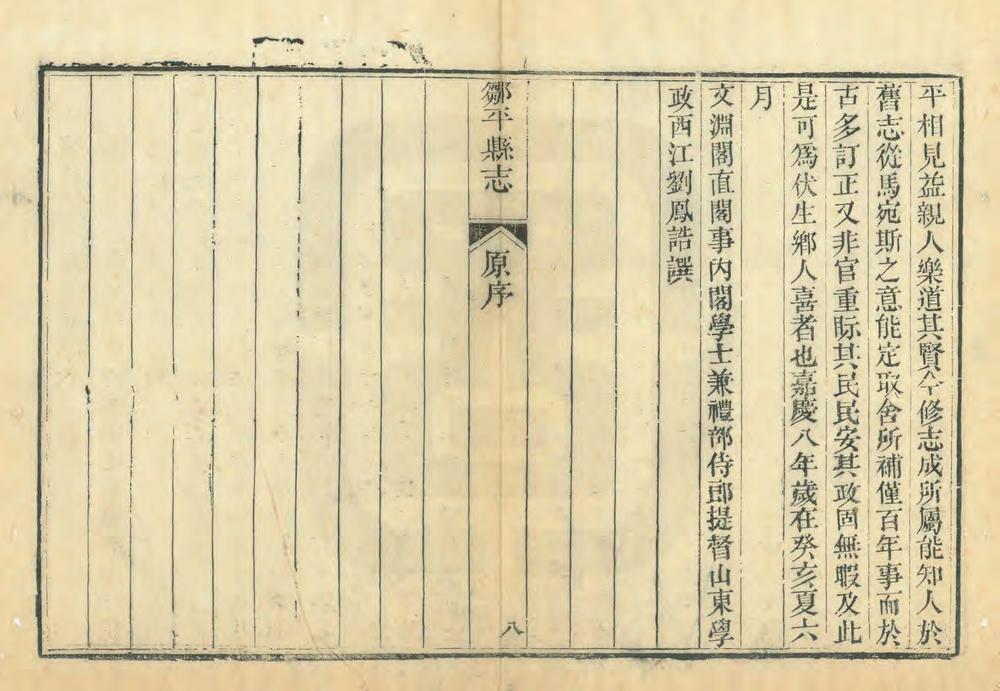 平相見益親人樂道其賢今修志成所屬能知人於
舊志從馬宛斯之意能定取舍所補僅百年事而於
古多訂正又非官重眎其民民安其政固無暇及此
是可爲伏生鄉人喜者也嘉慶八年歲在癸亥夏六
月
文淵閣直閣事內閣學士兼禮部侍郎提督山東學
政西江劉鳳誥譔
鄒平縣志
原序
八